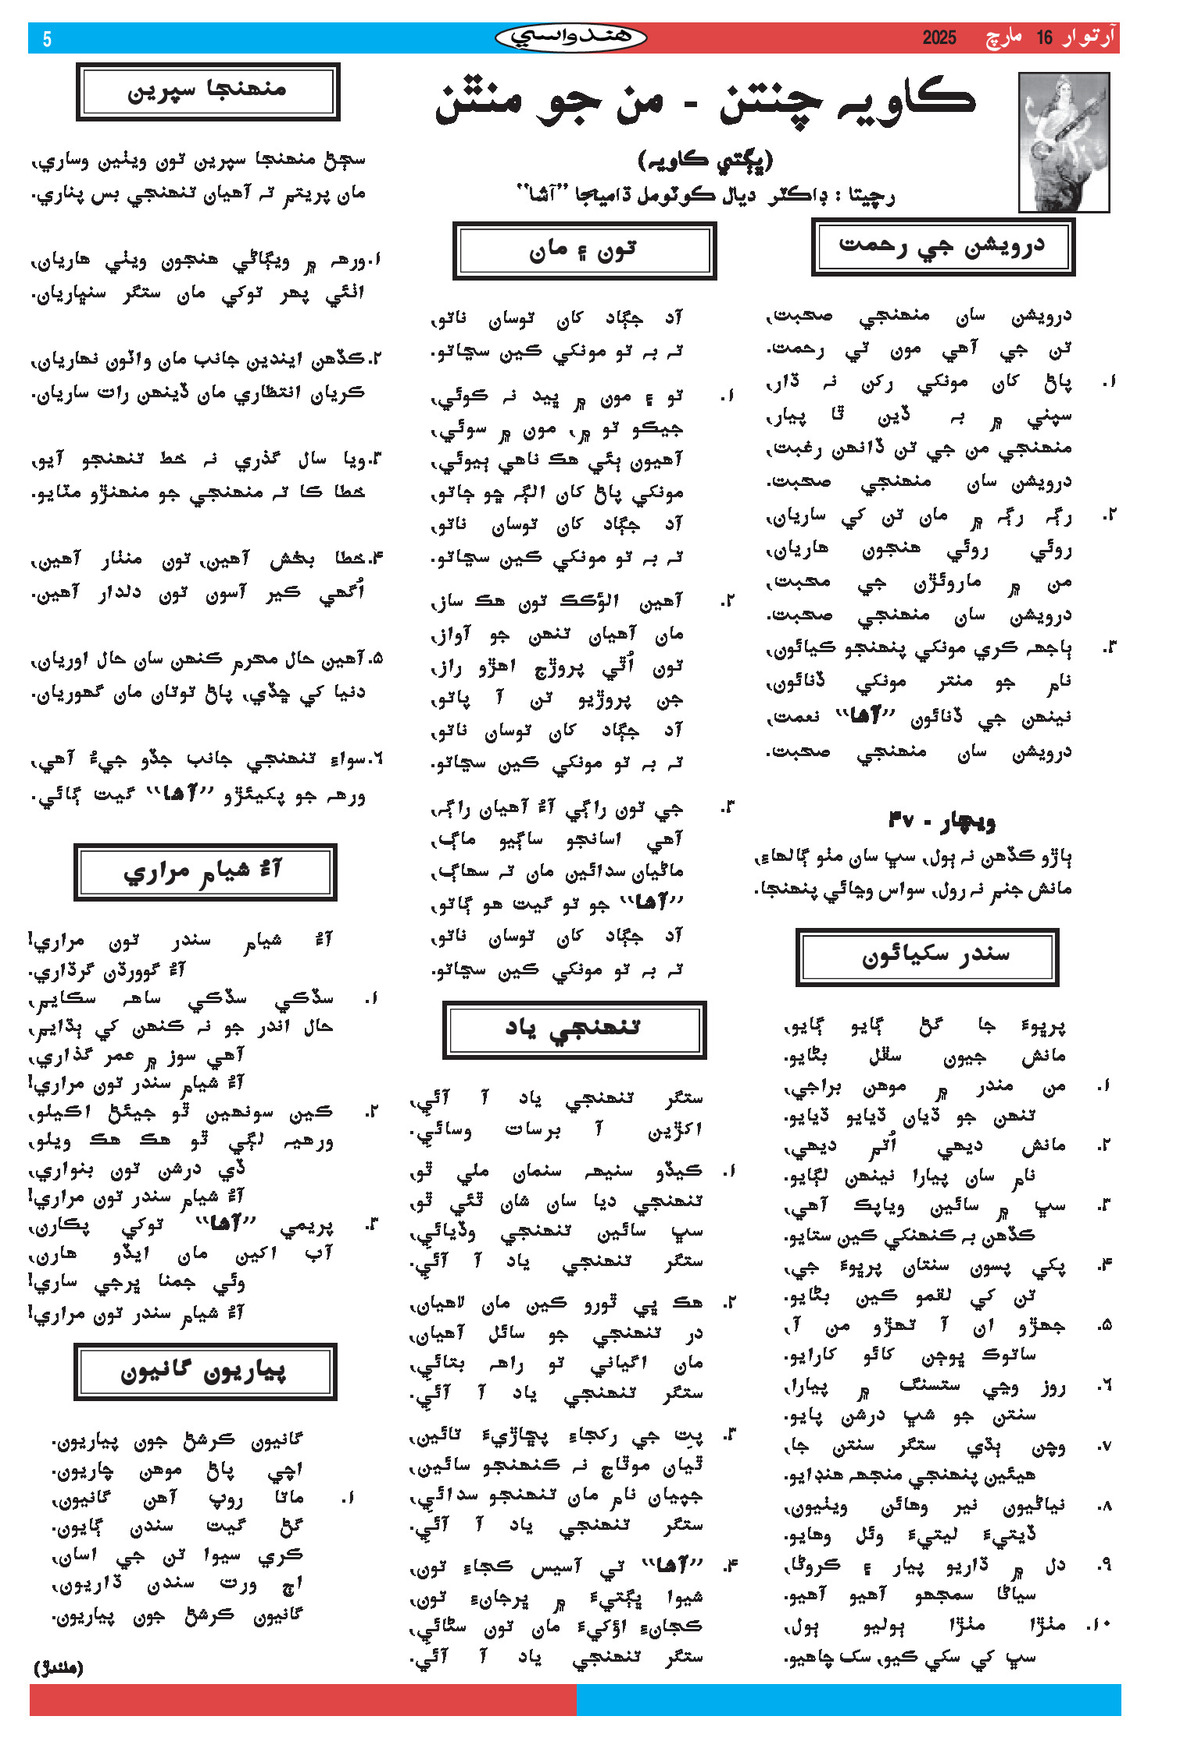 آرتوار 16 مارچ 2025
هندواسي
5
ڪاويہ چنتن - من جو منٿن
(ڀڳتي ڪاويہ)
رچيتا : ڊاڪٽر ديال ڪوٽومل ڌاميڄا ”آشا“
درويشن جي رحمت
درويشن سان منهنجي صحبت،
تن جي آهي مون تي رحمت.
۱. پاڻ کان مونکي رکن نہ ڌار،
سپني ۾ بہ ڏين ٿا پيار،
منهنجي من جي تن ڏانهن رغبت،
درويشن سان منهنجي صحبت.
۲. رڳہ رڳہ ۾ مان تن کي ساريان،
روئي روئي هنجون هاريان،
من ۾ ماروئڙن جي محبت،
درويشن سان منهنجي صحبت.
۳. ٻاجهہ ڪري مونکي پنهنجو ڪيائون،
نام جو منتر مونکي ڏنائون،
نينهن جي ڏنائون ”آشا“ نعمت،
درويشن سان منهنجي صحبت.
ويچار - ۴۷
ٻاڙو ڪڏهن نہ ٻول، سڀ سان مٺو ڳالهاءِ،
مانش جنم نہ رول، سواس وڃائي پنهنجا.
سندر سکيائون
پرڀوءَ جا گڻ ڳايو ڳايو،
مانش جيون سڦل بڻايو.
۱. من مندر ۾ موهن براجي،
تنهن جو ڌيان ڌيايو ڌيايو.
۲. مانش ديهي اُتم ديهي،
نام سان پيارا نينهن لڳايو.
۳. سڀ ۾ سائين وياپڪ آهي،
ڪڏهن بہ ڪنهنکي ڪين ستايو.
۴. پکي پسون سنتان پرڀوءَ جي،
تن کي لقمو ڪين بڻايو.
۵. جهڙو ان آ تهڙو من آ،
ساتوڪ ڀوڄن کائو کارايو.
۶. روز وڃي ستسنگ ۾ پيارا،
سنتن جو شڀ درشن پايو.
۷. وچن ٻڌي ستگر سنتن جا،
هيئين پنهنجي منجهہ هنڊايو.
۸. نياڻيون نير وهائن ويٺيون،
ڏيتيءَ ليتيءَ وئل وهايو.
۹. دل ۾ ڌاريو پيار ۽ ڪروڻا،
سياڻا سمجهو آهيو آهيو.
۱۰. مٺڙا مٺڙا ٻوليو ٻول،
سڀ کي سکي ڪيو، سک چاهيو.
تون ۽ مان
آد جڳاد کان توسان ناتو،
تہ بہ تو مونکي ڪين سڃاتو.
۱. تو ۽ مون ۾ ڀيد نہ ڪوئي،
جيڪو تو ۾، مون ۾ سوئي،
آهيون ٻئي هڪ ناهي ٻيوئي،
مونکي پاڻ کان الڳہ ڇو ڄاتو،
آد جڳاد کان توسان ناتو،
تہ بہ تو مونکي ڪين سڃاتو.
۲. آهين الؤڪڪ تون هڪ ساز،
مان آهيان تنهن جو آواز،
تون اُٿي پروڙج اهڙو راز،
جن پروڙيو تن آ پاتو،
آد جڳاد کان توسان ناتو،
تہ بہ تو مونکي ڪين سڃاتو.
۳. جي تون راڳي آءٌ آهيان راڳہ،
آهي اسانجو ساڳيو ماڳ،
ماڻيان سدائين مان تہ سهاڳ،
”آشا“ جو تو گيت هو ڳاتو،
آد جڳاد کان توسان ناتو،
تہ بہ تو مونکي ڪين سڃاتو.
تنهنجي ياد
ستگر تنهنجي ياد آ آئي،
اکڙين آ برسات وسائي.
۱. ڪيڏو سنيهہ سنمان ملي ٿو،
تنهنجي ديا سان شان ٿئي ٿو،
سڀ سائين تنهنجي وڏيائي،
ستگر تنهنجي ياد آ آئي.
۲. هڪ ڀي ٿورو ڪين مان لاهيان،
در تنهنجي جو سائل آهيان،
مان اگياني تو راهہ بتائي،
ستگر تنهنجي ياد آ آئي.
۳. پٺِ جي رکجاءِ پڇاڙيءَ تائين،
ٿيان موٿاج نہ ڪنهنجو سائين،
جپيان نام مان تنهنجو سدائي،
ستگر تنهنجي ياد آ آئي.
۴. ”آشا“ تي آسيس ڪجاءِ تون،
شيوا ڀڳتيءَ ۾ ڀرجانءِ تون،
ڪجانءِ اؤکيءَ مان تون سڻائي،
ستگر تنهنجي ياد آ آئي.
منهنجا سپرين
سڄڻ منهنجا سپرين تون ويٺين وساري،
مان پريتم تہ آهيان تنهنجي بس پناري.
۱.ورهہ ۾ ويڳاڻي هنجون ويٺي هاريان،
اٺئي پهر توکي مان ستگر سنڀاريان.
۲.ڪڏهن ايندين جانب مان واٽون نهاريان،
ڪريان انتظاري مان ڏينهن رات ساريان.
۳.ويا سال گذري نہ خط تنهنجو آيو،
خطا ڪا تہ منهنجي جو منهنڙو مٽايو.
۴.خطا بخش آهين، تون منٺار آهين،
اُگهي ڪير آسون تون دلدار آهين.
۵.آهين حال محرم ڪنهن سان حال اوريان،
دنيا کي ڇڏي، پاڻ توتان مان گهوريان.
۶.سواءِ تنهنجي جانب جڏو جيءُ آهي،
ورهہ جو پکيئڙو ”آشا“ گيت ڳائي.
آءٌ شيام مراري
آءٌ شيام سندر تون مراري!
آءٌ گوورڌن گرڌاري.
۱. سڏڪي سڏڪي ساهہ سڪايم،
حال اندر جو نہ ڪنهن کي ٻڌايم،
آهي سوز ۾ عمر گذاري،
آءٌ شيام سندر تون مراري!
۲. ڪين سونهين ٿو جيئڻ اڪيلو،
ورهيہ لڳي ٿو هڪ هڪ ويلو،
ڏي درشن تون بنواري،
آءٌ شيام سندر تون مراري!
۳. پريمي ”آشا“ توکي پڪارن،
آب اکين مان ايڏو هارن،
وئي جمنا ڀرجي ساري!
آءٌ شيام سندر تون مراري!
پياريون گانيون
گانيون ڪرشڻ جون پياريون.
اچي پاڻ موهن چاريون.
۱. ماتا روپ آهن گانيون،
گڻ گيت سندن ڳايون.
ڪري سيوا تن جي اسان،
اچ ورت سندن ڌاريون،
گانيون ڪرشڻ جون پياريون.
(هلندڙ)